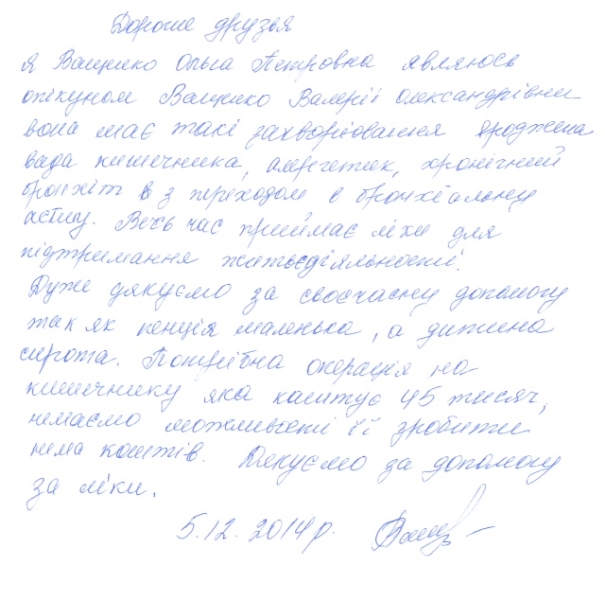 Дорогие друзья
Я Ващенко Ольга Петровна являюсь
опікуном Ващенко Валерії Олександрівни
вона має такі захворювання вроджена
вада кишечника, алергетик, хронічний
бронхіт в з переходом в бронхіальну
астму. Весь час приймає ліки для
підтримання життєдіяльності.
Дуже дякуємо за своєчасну допомогу
так як пенція маленька, а дитина
сирота. Потрібна операція на
кишечнику яка каштує 45 тисяч,
немаємо можливості її зробити
нема коштів. Дякуємо за допомогу
за ліки.
5.12.2014 р.